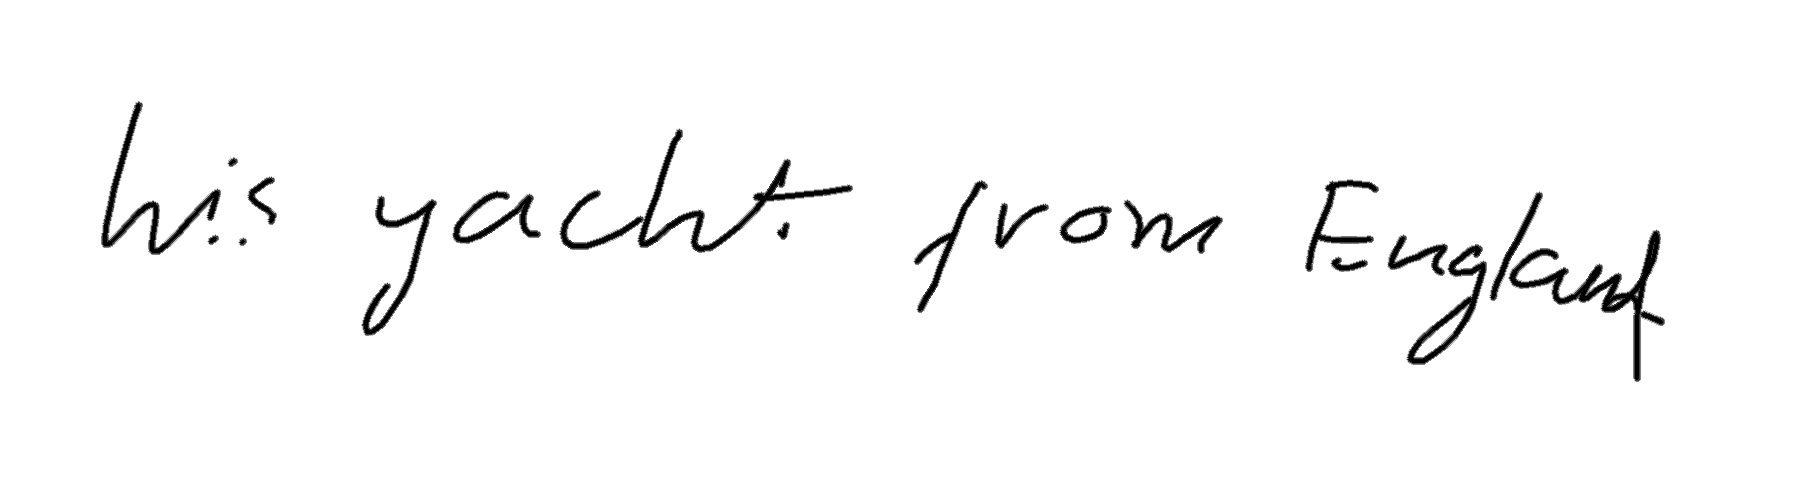 his yacht from England